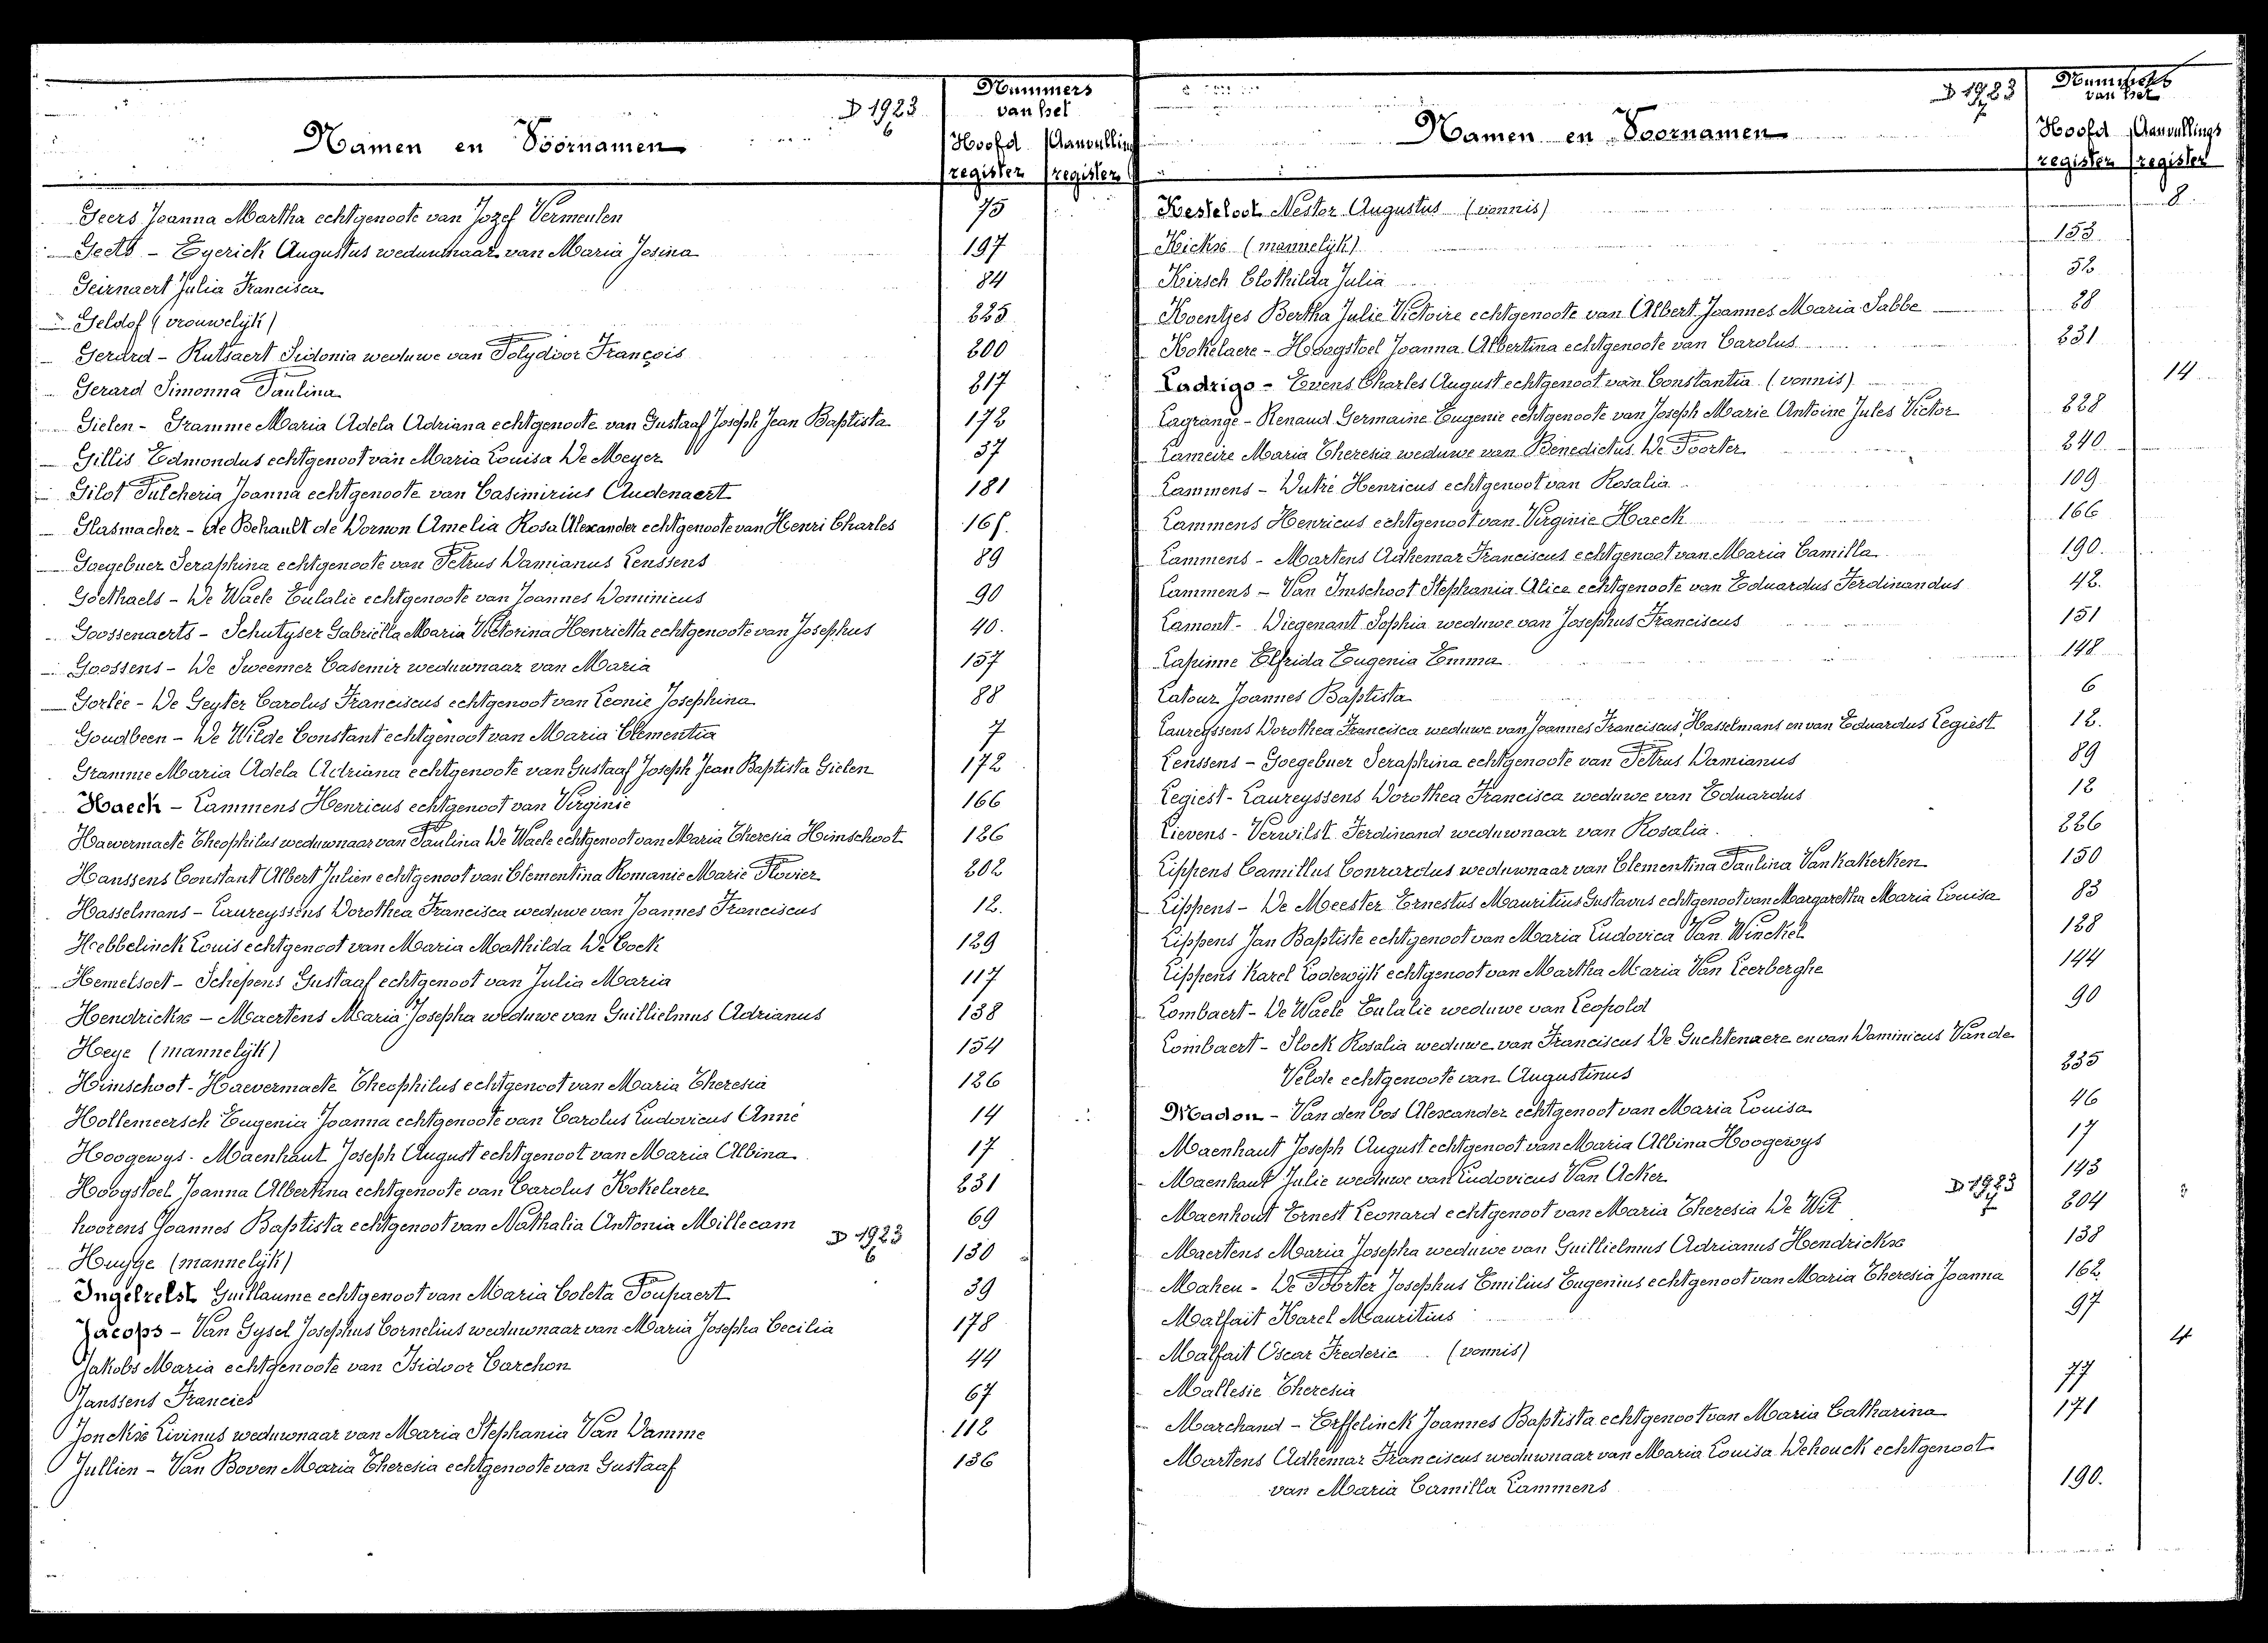 D 1923
6
Nummers
van het
Namen en Voornamen
Hoofd Aanvulling
register register
Geers Joanna Martha echtgenoote van Jozef Vermeulen 75
Geets - Eyerick Augustus weduwnaar van Maria Josina 197
Geirnaert Julia Francisca 84
Geldof (vrouwelijk) 225
Gerard - Rutsaert Sidonia weduwe van Polydoor François 200
Gerard Simonna Paulina 217
Gielen - Gramme Maria Adela Adriana echtgenoote van Gustaaf Joseph Jean Baptista 172
Gillis Edmondus echtgenoot van Maria Louisa De Meyer 37
Gilot Pulcheria Joanna echtgenoote van Casimirius Audenaert 181
Glasmacher - de Behault de Dornon Amelia Rosa Alexander echtgenoote van Henri Charles
Goegebuer Seraphina echtgenoote van Petrus Damianus Lenssens 89
Goethaels - De Waele Eulalie echtgenoote van Joannes Dominicus 90
Goossenaerts - Schutyser Gabriëlla Maria Victorina Henrietta echtgenoote van Josephus 40.
Goossens - De Sweemer Casemir weduwnaar van Maria 157
Gorlée - De Geyter Carolus Franciscus echtgenoot van Leonie Josephina 88
Goudbeen - De Wilde Constant echtgenoot van Maria Clementia 7
Gramme Maria Adela Adriana echtgenoote van Gustaaf Joseph Jean Baptista Gielen 172
Haeck - Lammens Henricus echtgenoot van Virginie 166
Haevermaete Theophilus weduwnaar van Paulina De Waele echtgenoot van Maria Theresia Himschoot 126
Hanssens Constant Albert Julien echtgenoot van Clementina Romanie Marie Plovier 202
Hasselmans - Laureyssens Dorothea Francisca weduwe van Joannes Franciscus 12.
Hebbelinck Louis echtgenoot van Maria Mathilda De Cock 129
Hemelsoet - Schepens Gustaaf echtgenoot van Julia Maria 117
Hendrickx - Maertens Maria Josepha weduwe van Guillielmus Adrianus 138
Heye (mannelijk) 154
Himschoot - Haevermaete Theophilus echtgenoot van Maria Theresia 126
Hollemeersch Eugenia Joanna echtgenoote van Carolus Ludovicus Anné 14
Hoogewys - Maenhaut Joseph August echtgenoot van Maria Albina 17
Hoogstoel Joanna Albertina echtgenoote van Carolus Kokelaere 231
hoorens Joannes Baptista echtgenoot van Nathalia Antonia Millecam 69
D 1923
6
Huyge (mannelijk) 130
Ingelrelst Guillaume echtgenoot van Maria Coleta Poupaert 39
Jacops - Van Gysel Josephus Cornelius weduwnaar van Maria Josepha Cecilia 178
Jakobs Maria echtgenoote van Isidoor Carchon 44
Janssens Francies 67
Jonckx Livinus weduwnaar van Maria Stephania Van Damme 112
Jullien - Van Boven Maria Theresia echtgenoote van Gustaaf 136
D 1923
7
Nummers
van het
Namen en Voornamen
Hoofd Aanvullings
register register
Kesteloot Nestor Augustus (vonnis) 8.
Kickx (mannelijk) 153
Kirsch Clothilda Julia 52
Koentjes Bertha Julie Victoire echtgenoote van Albert Joannes Maria Sabbe 28
Kokelaere - Hoogstoel Joanna Albertina echtgenoote van Carolus 231
Ladrigo - Evens Charles August echtgenoot van Constantia (vonnis) 14
Lagrange - Renaud Germaine Eugenie echtgenoote van Joseph Marie Antoine Jules Victor 228
Lameire Maria Theresia weduwe van Benedictus De Poorter 240
Lammens - Dutré Henricus echtgenoot van Rosalia 109
Lammens Henricus echtgenoot van Virginie Haeck 166
Lammens - Martens Adhemar Franciscus echtgenoot van Maria Camilla 190.
Lammens - Van Imschoot Stephania Alice echtgenoote van Eduardus Ferdinandus 42.
Lamont - Diegenant Sophia weduwe van Josephus Franciscus 151
Lapinne Elfrida Eugenia Emma 148
Latour Joannes Baptista 6
Laureyssens Dorothea Francisca weduwe van Joannes Franciscus Hasselmans en van Eduardus Legiest 12.
Lenssens - Goegebuer Seraphina echtgenoote van Petrus Damianus 89
Legiest - Laureyssens Dorothea Francisca weduwe van Eduardus 12
Lievens - Verwilst Ferdinand weduwnaar van Rosalia. 226
Lippens Camillus Conrardus weduwnaar van Clementina Paulina Vankakerken 150
Lippens - De Meester Ernestus Mauritius Gustavus echtgenoot van Margaretha Maria Louisa 83
Lippens Jan Baptiste echtgenoot van Maria Ludovica Van Winckel 128
Lippens Karel Lodewijk echtgenoot van Martha Maria Van Leerberghe 144
Lombaert - De Waele Eulalie weduwe van Leopold 90
Lombaert - Slock Rosalia weduwe van Franciscus De Guchtenaere en van Dominicus Van de
Velde echtgenoote van Augustinus 235
Madon - Van den Cos Alexander echtgenoot van Maria Louisa 46
Maenhaut Joseph August echtgenoot van Maria Albina Hoogewys 17
Maenhaut Julie weduwe van Ludovicus Van Acker 143
D 1923
7
Maenhout Ernest Leonard echtgenoot van Maria Theresia De Wit 204
Maertens Maria Josepha weduwe van Guillielmus Adrianus Hendrickx 138
Maheu - De Poorter Josephus Emilius Eugenius echtgenoot van Maria Theresia Joanna 162
Malfait Karel Mauritius 97
Malfait Oscar Frederic (vonnis) 4
Mallesie Theresia 77
Marchand - Erffelinck Joannes Baptista echtgenoot van Maria Catharina 171
Martens Adhemar Franciscus weduwnaar van Maria Louisa Dehouck echtgenoot
van Maria Camilla Lammens 190.